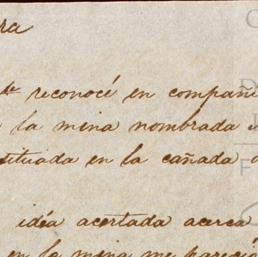 ra
de reconocé en compañi
la mina nombrada
situada en la cañada
idéa acertada acerca
en la mina me pareció